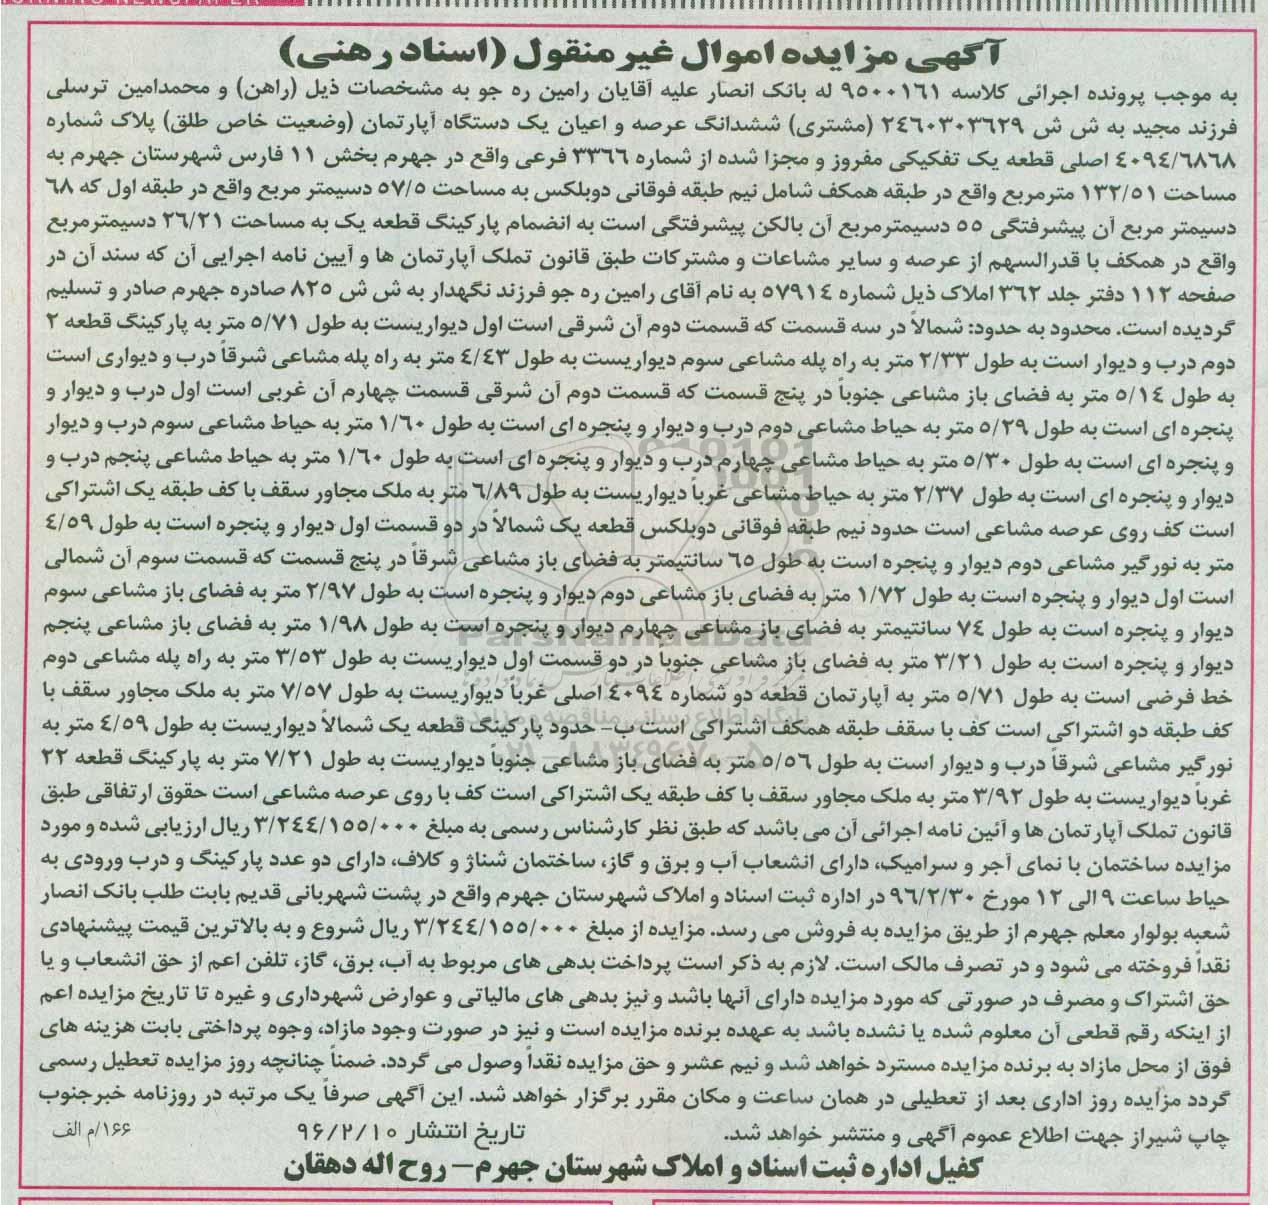 آگهی مزایده اموال غیر منقول (اسناد رهنی)
به موجب پرونده اجرائی کلاسه ۹۵۰۰۱۶۱ له بانک انصار علیه آقایان رامین ره جو به مشخصات ذیل (راهن) و محمدامین ترسلی
فرزند مجید به ش ش ۲۴۶۰۳۰۳۶۲۹ (مشتری) ششدانگ عرصه و اعیان یک دستگاه آپارتمان (وضعیت خاص طلق) پلاک شماره
۴۰۹۴/۶۸۶۸ اصلی قطعه یک تفکیکی مفروز و مجزا شده از شماره ۳۳۶۶ فرعی واقع در جهرم بخش ۱۱ فارس شهرستان جهرم به
مساحت ۱۳۲/۵۱ مترمربع واقع در طبقه همکف شامل نیم طبقه فوقانی دوبلکس به مساحت ۵۷/۵ دسیمتر مربع واقع در طبقه اول که ۶۸
دسیمتر مربع آن پیشرفتگی ۵۵ دسیمترمربع آن بالکن پیشرفتگی است به انضمام پارکینگ قطعه یک به مساحت ۲۶/۲۱ دسیمترمربع
واقع در همکف با قدرالسهم از عرصه و سایر مشاعات و مشترکات طبق قانون تملک آپارتمان ها و آیین نامه اجرایی آن که سند آن در
صفحه ۱۱۲ دفتر جلد ۳۶۲ املاک ذیل شماره ۵۷۹۱۴ به نام آقای رامین ره جو فرزند نگهدار به ش ش ۸۲۵ صادره جهرم صادر و تسلیم
گردیده است. محدود به حدود: شمالاً در سه قسمت که قسمت دوم آن شرقی است اول دیواریست به طول ۵/۷۱ متر به پارکینگ قطعه ۲
دوم درب و دیوار است به طول ۲/۳۳ متر به راه پله مشاعی سوم دیواریست به طول ۴/۴۳ متر به راه پله مشاعی شرقاً درب و دیواری است
به طول ۵/۱۴ متر به فضای باز مشاعی جنوباً در پنج قسمت که قسمت دوم آن شرقی قسمت چهارم آن غربی است اول درب و دیوار و
پنجره ای است به طول ۵/۲۹ متر به حیاط مشاعی دوم درب و دیوار و پنجره ای است به طول ۱/۶۰ متر به حیاط مشاعی سوم درب و دیوار
و پنجره ای است به طول ۵/۳۰ متر به حیاط مشاعی چهارم درب و دیوار و پنجره ای است به طول ۱/۶۰ متر به حیاط مشاعی پنجم درب و
دیوار و پنجره ای است به طول ۲/۳۷ متر به حیاط مشاعی غرباً دیواریست به طول ۶/۸۹ متر به ملک مجاور سقف با کف طبقه یک اشتراکی
است کف روی عرصه مشاعی است حدود نیم طبقه فوقانی دوبلکس قطعه یک شمالاً در دو قسمت اول دیوار و پنجره است به طول ۴/۵۹
متر به نورگیر مشاعی دوم دیوار و پنجره است به طول ۶۵ سانتیمتر به فضای باز مشاعی شرقاً در پنج قسمت که قسمت سوم آن شمالی
است اول دیوار و پنجره است به طول ۱/۷۲ متر به فضای باز مشاعی دوم دیوار و پنجره است به طول ۲/۹۷ متر به فضای باز مشاعی سوم
دیوار و پنجره است به طول ۷۴ سانتیمتر به فضای باز مشاعی چهارم دیوار و پنجره است به طول ۱/۹۸ متر به فضای باز مشاعی پنجم
دیوار و پنجره است به طول ۳/۲۱ متر به فضای باز مشاعی جنوباً در دو قسمت اول دیواریست به طول ۳/۵۳ متر به راه پله مشاعی دوم
خط فرضی است به طول ۵/۷۱ متر به آپارتمان قطعه دو شماره ۴۰۹۴ اصلی غرباً دیواریست به طول ۷/۵۷ متر به ملک مجاور سقف با
کف طبقه دو اشتراکی است کف با سقف طبقه همکف اشتراکی است ب- حدود پارکینگ قطعه یک شمالاً دیواریست به طول ۴/۵۹ متر به
نورگیر مشاعی شرقاً درب و دیوار است به طول ۵/۵۶ متر به فضای باز مشاعی جنوباً دیواریست به طول ۷/۲۱ متر به پارکینگ قطعه ۲۲
غرباً دیواریست به طول ۳/۹۲ متر به ملک مجاور سقف با کف طبقه یک اشتراکی است کف با روی عرصه مشاعی است حقوق ارتفاقی طبق
قانون تملک آپارتمان ها و آئین نامه اجرائی آن می باشد که طبق نظر کارشناس رسمی به مبلغ ۳/۲۴۴/۱۵۵/۰۰۰ ریال ارزیابی شده و مورد
مزایده ساختمان با نمای آجر و سرامیک، دارای انشعاب آب و برق و گاز، ساختمان شناژ و کلاف، دارای دو عدد پارکینگ و درب ورودی به
حیاط ساعت ۹ الی ۱۲ مورخ ۹۶/۲/۳۰ در اداره ثبت اسناد و املاک شهرستان جهرم واقع در پشت شهربانی قدیم بابت طلب بانک انصار
شعبه بولوار معلم جهرم از طریق مزایده به فروش می رسد. مزایده از مبلغ ۳/۲۴۴/۱۵۵/۰۰۰ ریال شروع و به بالاترین قیمت پیشنهادی
نقداً فروخته می شود و در تصرف مالک است. لازم به ذکر است پرداخت بدهی های مربوط به آب، برق، گاز، تلفن اعم از حق انشعاب و یا
حق اشتراک و مصرف در صورتی که مورد مزایده دارای آنها باشد و نیز بدهی های مالیاتی و عوارض شهرداری و غیره تا تاریخ مزایده اعم
از اینکه رقم قطعی آن معلوم شده یا نشده باشد به عهده برنده مزایده است و نیز در صورت وجود مازاد، وجوه پرداختی بابت هزینه های
فوق از محل مازاد به برنده مزایده مسترد خواهد شد و نیم عشر و حق مزایده نقداً وصول می گردد. ضمناً چنانچه روز مزایده تعطیل رسمی
گردد مزایده روز اداری بعد از تعطیلی در همان ساعت و مکان مقرر برگزار خواهد شد. این آگهی صرفاً یک مرتبه در روزنامه خبرجنوب
چاپ شیراز جهت اطلاع عموم آگهی و منتشر خواهد شد. تاریخ انتشار ۹۶/۲/۱۰ ۱۶۶/م الف
کفیل اداره ثبت اسناد و املاک شهرستان جهرم – روح اله دهقان
ParsNamadData
پایگاه اطلاع رسانی مناقصه و مزایده
۰۲۱-۸۸۳۴۹۶۷۰-۵